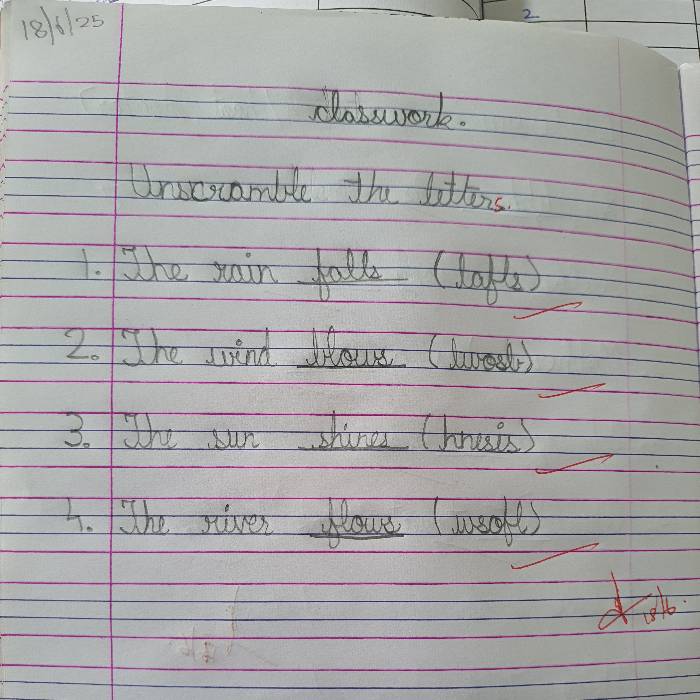 18/6/25
2
classwork.
Unscramble the letters.
1. The rain falls (lafls)
2. The wind blows (lwosb)
3. The sun shines (hnesis)
4. The river flows (wsofl)
18/6.